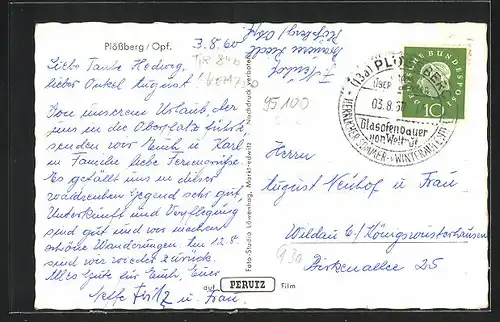 Plößberg / Opf.
3.8.60
Liebe Tante Hedwig,
lieber Onkel August!
Von unserem Urlaub, der
uns in die Oberpfalz führte,
senden wir Euch u. Karl
u. Familie liebe Feriengrüße.
Es gefällt uns in dieser
waldreichen Gegend sehr gut.
Unterkunft und Verpflegung
sind gut und wir machen
schöne Wanderungen. Am 12.8.
sind wir wieder zurück.
Alles Gute für Euch, Euer
Neffe Fritz u. Frau.
F. Neuhof
Plößberg / Opf.
95100
930
Foto-Studio Löwenhag, Marktredwitz
Nachdruck verboten
auf PERUTZ Film
(13a) PLÖSSBERG
über
03.8.60
Glasofenbauer
von Weltruf
HERRLICHER SOMMER- u. WINTERAUFENTHALT
DEUTSCHE BUNDESPOST
10
Herrn
August Neuhof u. Frau
Wildau b/ Königswusterhausen
Birkenallee 25